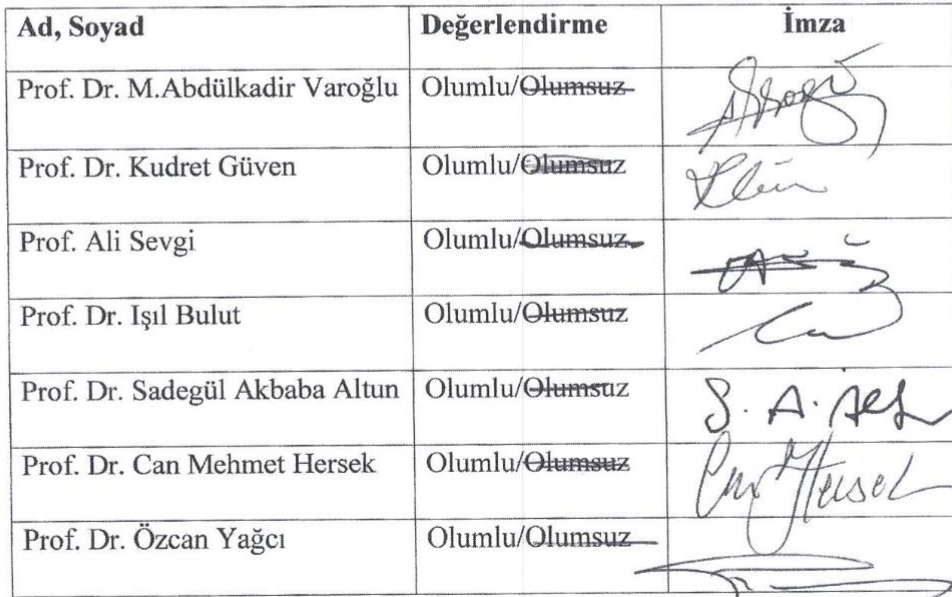 Ad, Soyad Değerlendirme İmza
Prof. Dr. M.Abdülkadir Varoğlu Olumlu/Olumsuz
Prof. Dr. Kudret Güven Olumlu/Olumsuz
Prof. Ali Sevgi Olumlu/Olumsuz
Prof. Dr. Işıl Bulut Olumlu/Olumsuz
Prof. Dr. Sadegül Akbaba Altun Olumlu/Olumsuz S. A.
Prof. Dr. Can Mehmet Hersek Olumlu/Olumsuz Can Hersek
Prof. Dr. Özcan Yağcı Olumlu/Olumsuz